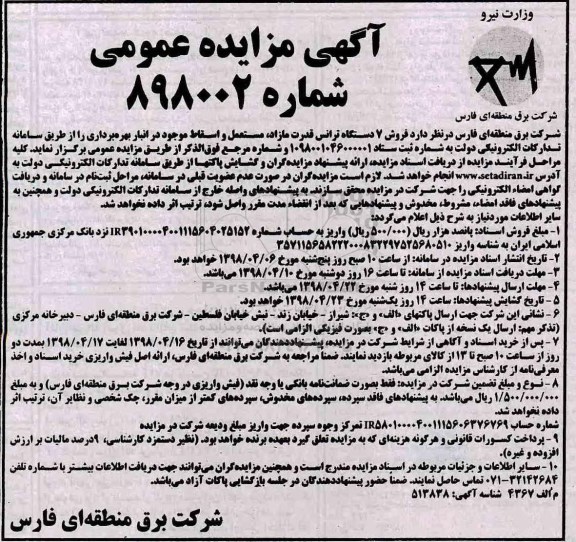 وزارت نیرو
آگهی مزایده عمومی
شماره ۸۹۸۰۰۲
شرکت برق منطقه‌ای فارس
شرکت برق منطقه‌ای فارس درنظر دارد فروش ۷ دستگاه ترانس قدرت مازاد، مستعمل و اسقاط موجود در انبار بهره‌برداری را از طریق سامانه
تدارکات الکترونیکی دولت به شماره ثبت ستاد ۱۰۹۸۰۰۱۰۴۶۰۰۰۰۰۱ و شماره مرجع فوق‌الذکر از طریق مزایده عمومی برگزار نماید. کلیه
مراحل فرآیند مزایده از دریافت اسناد مزایده، ارائه پیشنهاد مزایده‌گران و گشایش پاکتها از طریق سامانه تدارکات الکترونیکی دولت به
آدرس www.setadiran.ir انجام خواهد شد. لازم است مزایده‌گران در صورت عدم عضویت قبلی در سامانه، مراحل ثبت‌نام در سامانه و دریافت
گواهی امضاء الکترونیکی را جهت شرکت در مزایده محقق سازند. به پیشنهادهای واصله خارج از سامانه تدارکات الکترونیکی دولت و همچنین به
پیشنهادهای فاقد امضاء، مشروط، مخدوش و پیشنهادهایی که بعد از انقضاء مدت مقرر واصل شود، ترتیب اثر داده نخواهد شد.
سایر اطلاعات موردنیاز به شرح ذیل اعلام می‌گردد:
۱- مبلغ فروش اسناد: پانصد هزار ریال (۵۰۰/۰۰۰ ریال) واریز به حساب شماره IR۳۹۰۱۰۰۰۰۴۰۰۱۱۱۵۶۰۴۰۲۵۱۵۲ نزد بانک مرکزی جمهوری
اسلامی ایران به شناسه واریز ۳۵۷۱۱۵۶۵۸۲۲۲۰۰۰۸۳۲۲۹۷۵۲۵۶۸۰۵۱۰
۲- تاریخ انتشار اسناد مزایده در سامانه: از ساعت ۱۰ صبح روز پنج‌شنبه مورخ ۱۳۹۸/۰۴/۰۶ خواهد بود.
۳- مهلت دریافت اسناد مزایده از سامانه: تا ساعت ۱۶ روز دوشنبه مورخ ۱۳۹۸/۰۴/۱۰ می‌باشد.
۴- مهلت ارسال پیشنهادها: تا ساعت ۱۴ روز شنبه مورخ ۱۳۹۸/۰۴/۲۲ می‌باشد.
۵- تاریخ گشایش پیشنهادها: ساعت ۱۴ روز یک‌شنبه مورخ ۱۳۹۸/۰۴/۲۳ خواهد بود.
۶- نشانی این شرکت جهت ارسال پاکتهای «الف» و «ج»: شیراز - خیابان زند - نبش خیابان فلسطین - شرکت برق منطقه‌ای فارس - دبیرخانه مرکزی
(تذکر مهم: ارسال یک نسخه از پاکات «الف» و «ج» بصورت فیزیکی الزامی است).
۷- پس از خرید اسناد و آگاهی از شرایط شرکت در مزایده، پیشنهاددهندگان می‌توانند از تاریخ ۱۳۹۸/۰۴/۱۶ لغایت ۱۳۹۸/۰۴/۱۷ بمدت دو
روز از ساعت ۱۰ صبح تا ۱۳ از کالای مربوطه بازدید نمایند. ضمنا مراجعه به شرکت برق منطقه‌ای فارس، ارائه اصل فیش واریزی خرید اسناد و اخذ
معرفی‌نامه از کارشناس مزایده الزامی می‌باشد.
۸- نوع و مبلغ تضمین شرکت در مزایده: فقط بصورت ضمانت‌نامه بانکی یا وجه نقد (فیش واریزی در وجه شرکت برق منطقه‌ای فارس) و به مبلغ
۱/۵۰۰/۰۰۰/۰۰۰ ریال می‌باشد. به پیشنهادهای فاقد سپرده، سپرده‌های مخدوش، سپرده‌های کمتر از میزان مقرر، چک شخصی و نظایر آن، ترتیب اثر
داده نخواهد شد.
شماره حساب IR۵۸۰۱۰۰۰۰۴۰۰۱۱۱۵۶۰۶۳۷۶۷۶۹ تمرکز وجوه سپرده جهت واریز مبلغ ودیعه شرکت در مزایده
۹- پرداخت کسورات قانونی و هرگونه هزینه‌ای که به مزایده تعلق گیرد بعهده برنده خواهد بود. (نظیر دستمزد کارشناسی، ۹درصد مالیات بر ارزش
افزوده و غیره).
۱۰- سایر اطلاعات و جزئیات مربوطه در اسناد مزایده مندرج است و همچنین مزایده‌گران می‌توانند جهت دریافت اطلاعات بیشتر با شماره تلفن
۰۷۱-۳۲۱۴۲۶۸۴ تماس حاصل نمایند. ضمنا حضور پیشنهاددهندگان در جلسه بازگشایی پاکات آزاد می‌باشد.
م الف ۴۳۶۷ شناسه آگهی: ۵۱۳۸۳۸
شرکت برق منطقه‌ای فارس